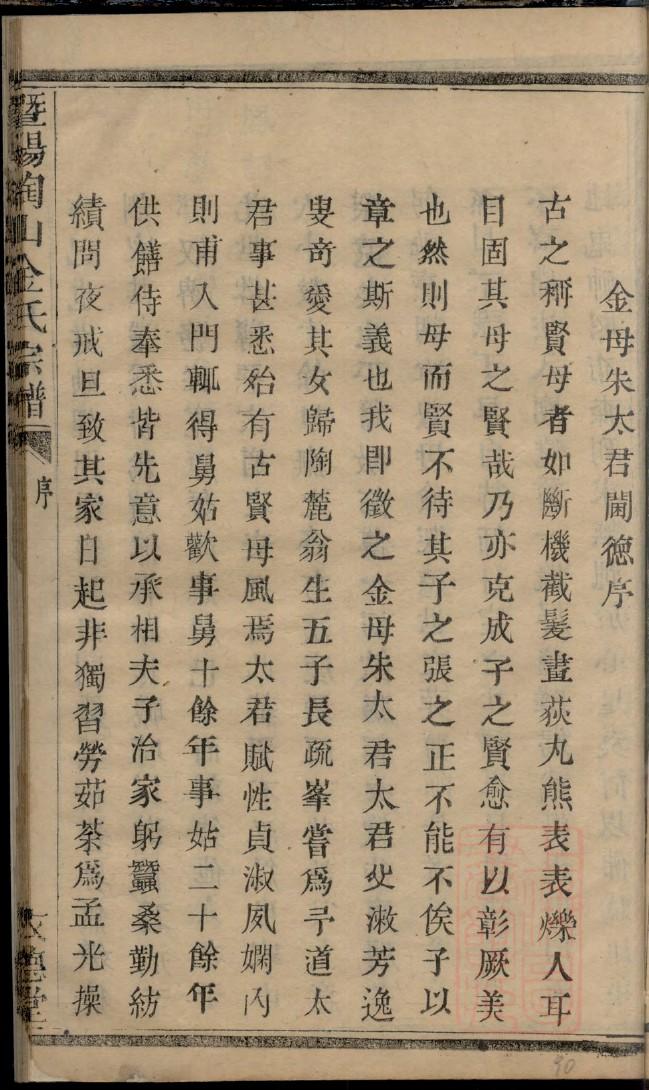 金母朱太君閫德序
古之稱賢母者如斷機截髮畫荻丸熊表表爍人耳
目固其母之賢哉乃亦克成子之賢愈有以彰厥美
也然則母而賢不待其子之張之正不能不俟子以
章之斯義也我卽徵之金母朱太君太君父漱芳逸
叟奇愛其女歸陶麓翁生五子長疏峯嘗爲予道太
君事甚悉殆有古賢母風焉太君賦性貞淑夙嫻內
則甫入門輒得舅姑歡事舅十餘年事姑二十餘年
供饍侍奉悉皆先意以承相夫子治家躬蠶桑勤紡
績問夜戒旦致其家日起非獨習勞茹荼爲孟光操
暨陽陶山金氏宗譜
序